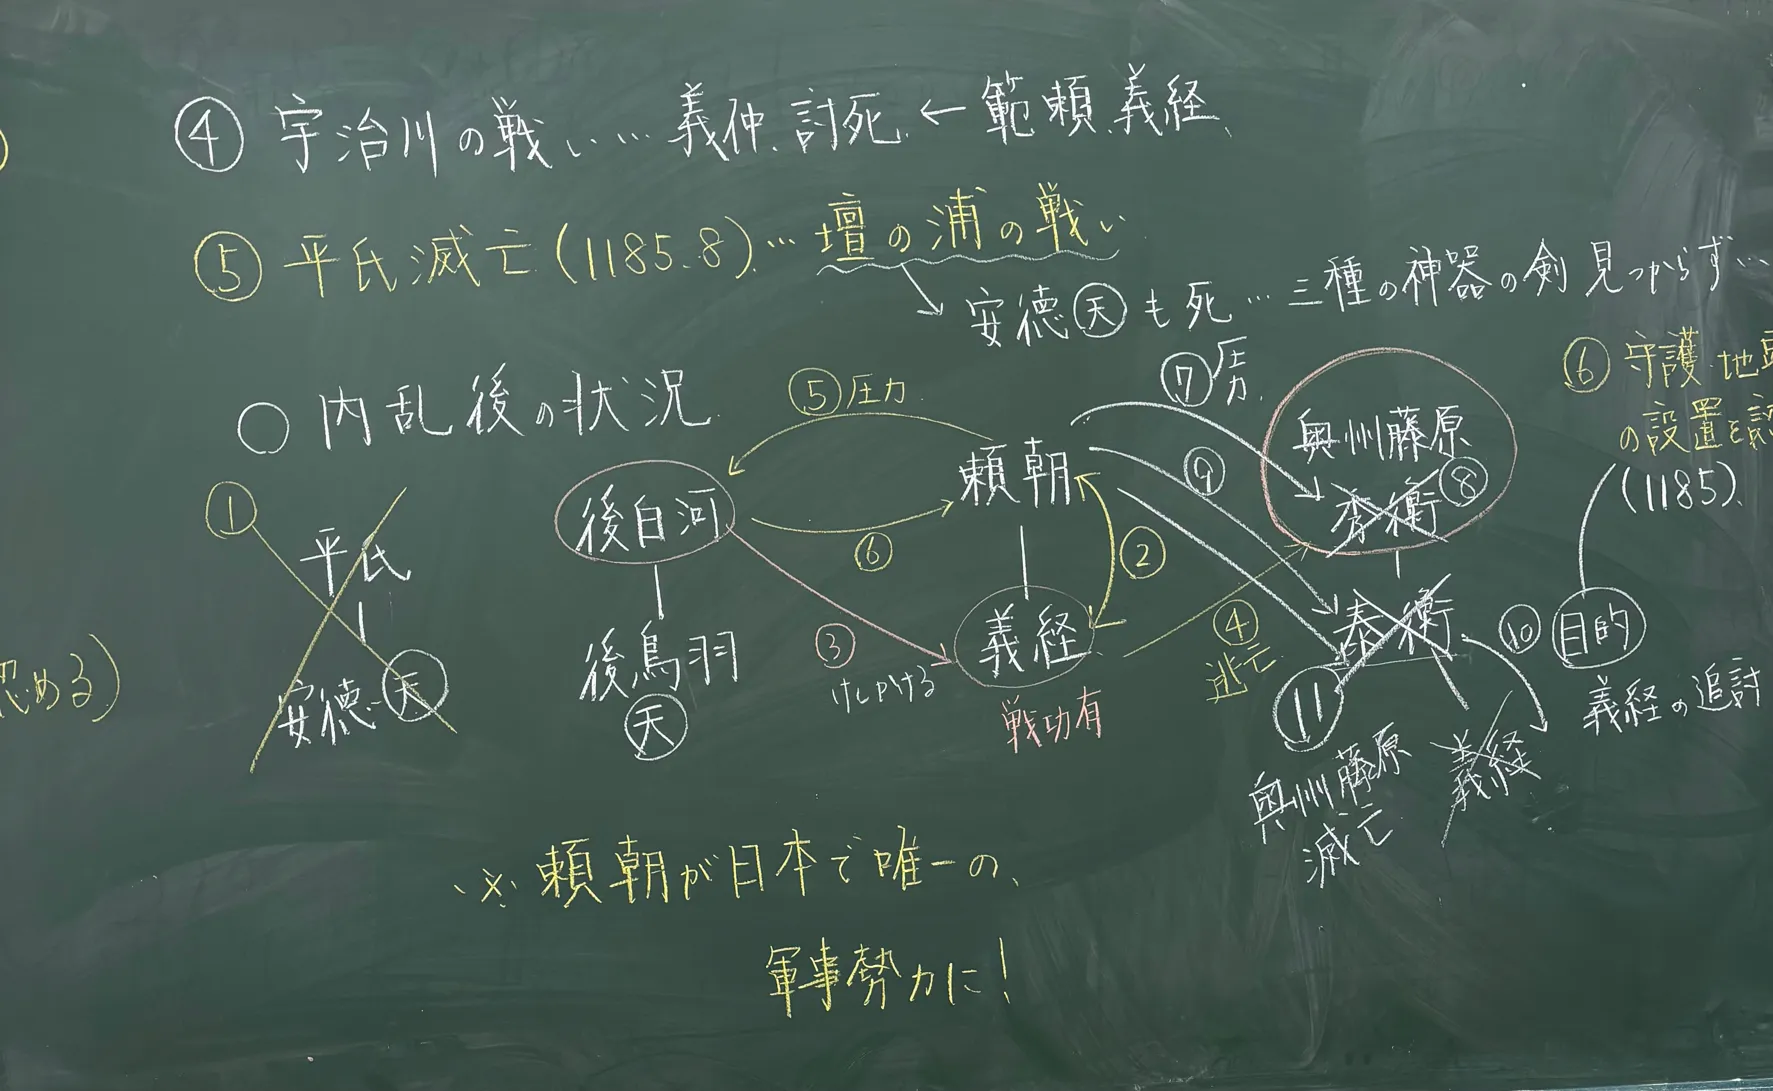 ④宇治川の戦い……義仲、討死。←範頼、義経、
⑤平氏滅亡(1185.8)…壇の浦の戦い
安徳天も死…三種の神器の剣見つからず…
⑥守護・地
の設置を
(1185)、
○内乱後の状況
⑤圧力
⑦圧力
①
平氏
安徳天
後白河
後鳥羽
天
頼朝
義経
戦功有
⑥
③
けしかける
②
④
逃亡
⑨
奥州藤原
秀衡⑧
泰衡
⑩
目的
義経の追討
⑪
奥州藤原
滅亡
義経
認める)
※頼朝が日本で唯一の、
軍事勢力に!